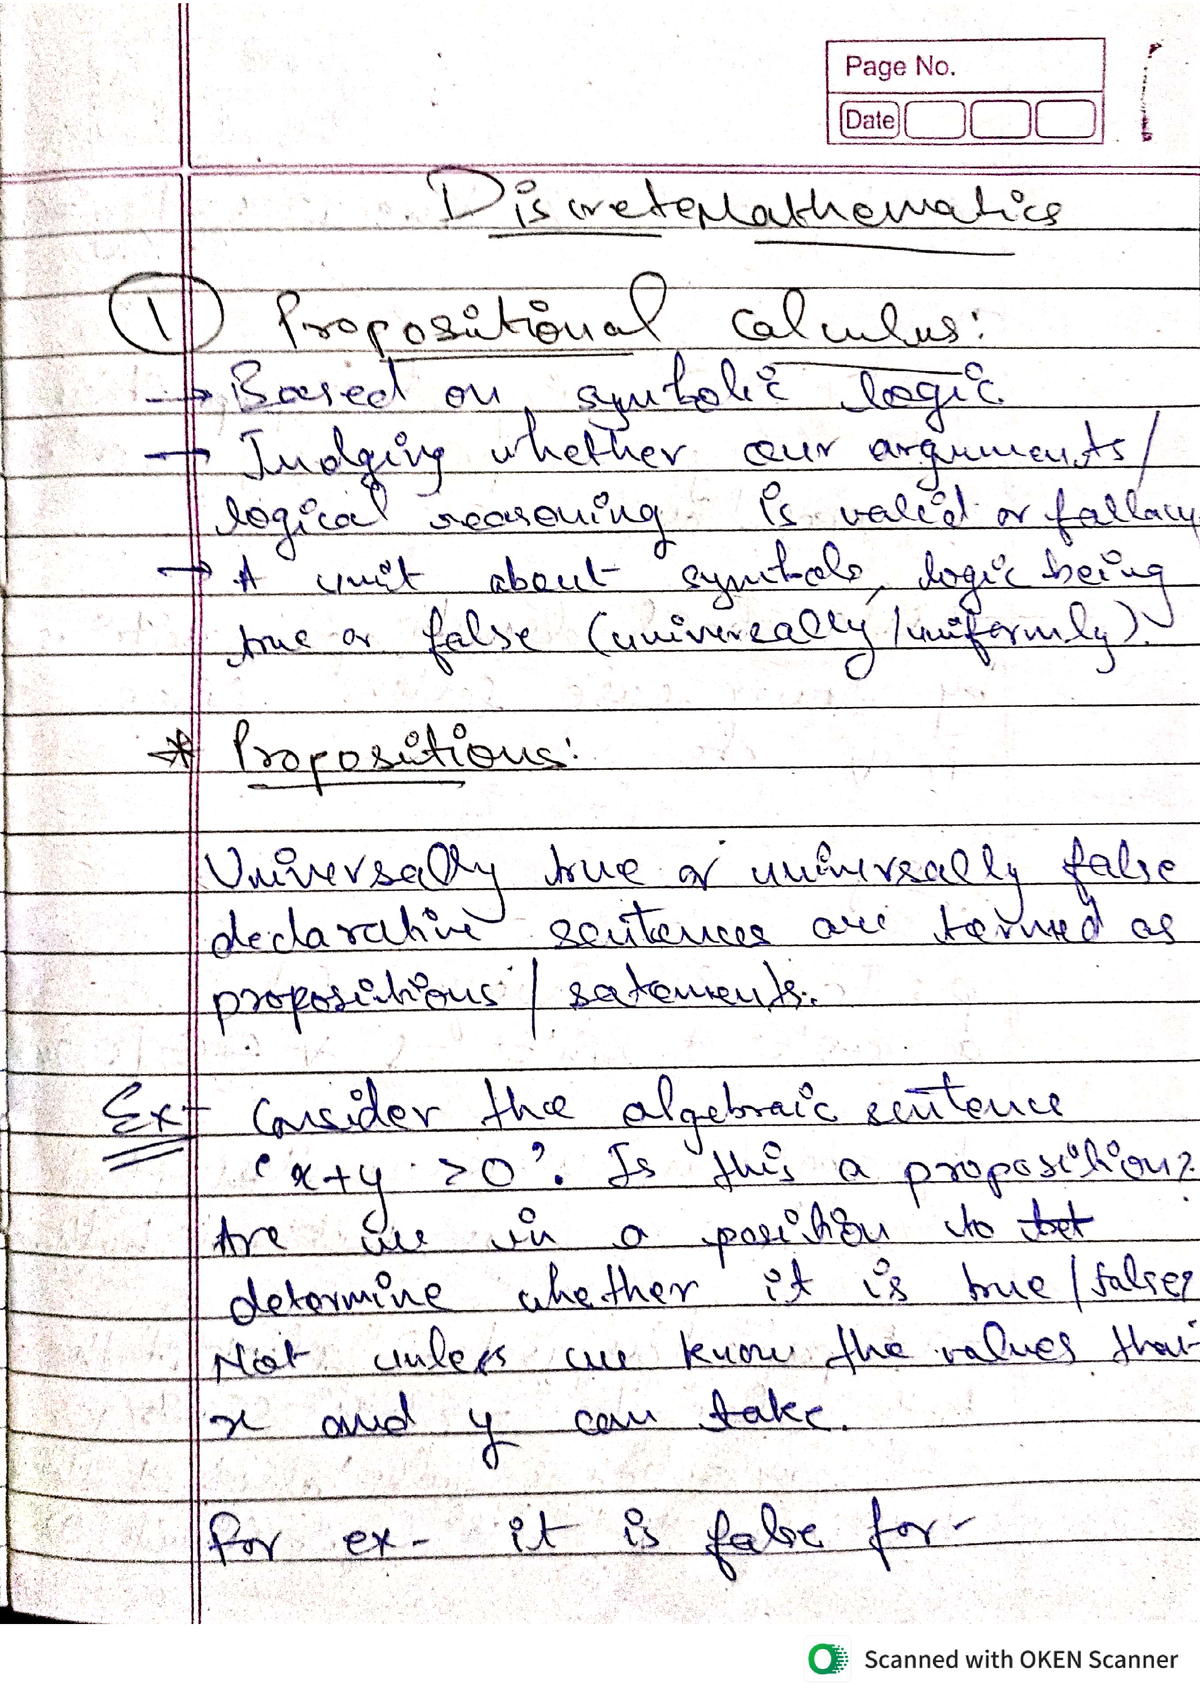 Page No.
Date
Discrete Mathematics
1 Propositional Calculus:
→ Based on symbolic logic.
→ Judging whether our arguments/
logical reasoning is valid or fallacy
→ A unit about symbols, logic being
true or false (universally/uniformly).
* Propositions:
Universally true or universally false
declarative sentences are termed as
propositions / satements.
Ex- Consider the algebraic sentence
'x+y >0'. Is this a proposition?
Are we in a position to
determine whether it is true/false?
Not unless we know the values that
x and y can take.
For ex- it is false for-
Scanned with OKEN Scanner